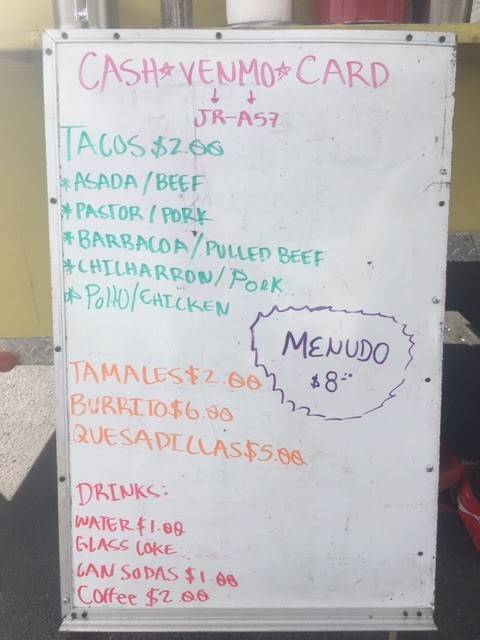 CASH★VENMO★CARD
↓ ↓
JR-A57
TACOS $2.00
*ASADA/BEEF
*PASTOR/PORK
*BARBACOA/PULLED BEEF
*CHICHARRON/PORK
*POLLO/CHICKEN
MENUDO
$8.00
TAMALES $2.00
BURRITO $6.00
QUESADILLAS $5.00
DRINKS:
WATER $1.00
GLASS COKE
CAN SODAS $1.00
Coffee $2.00